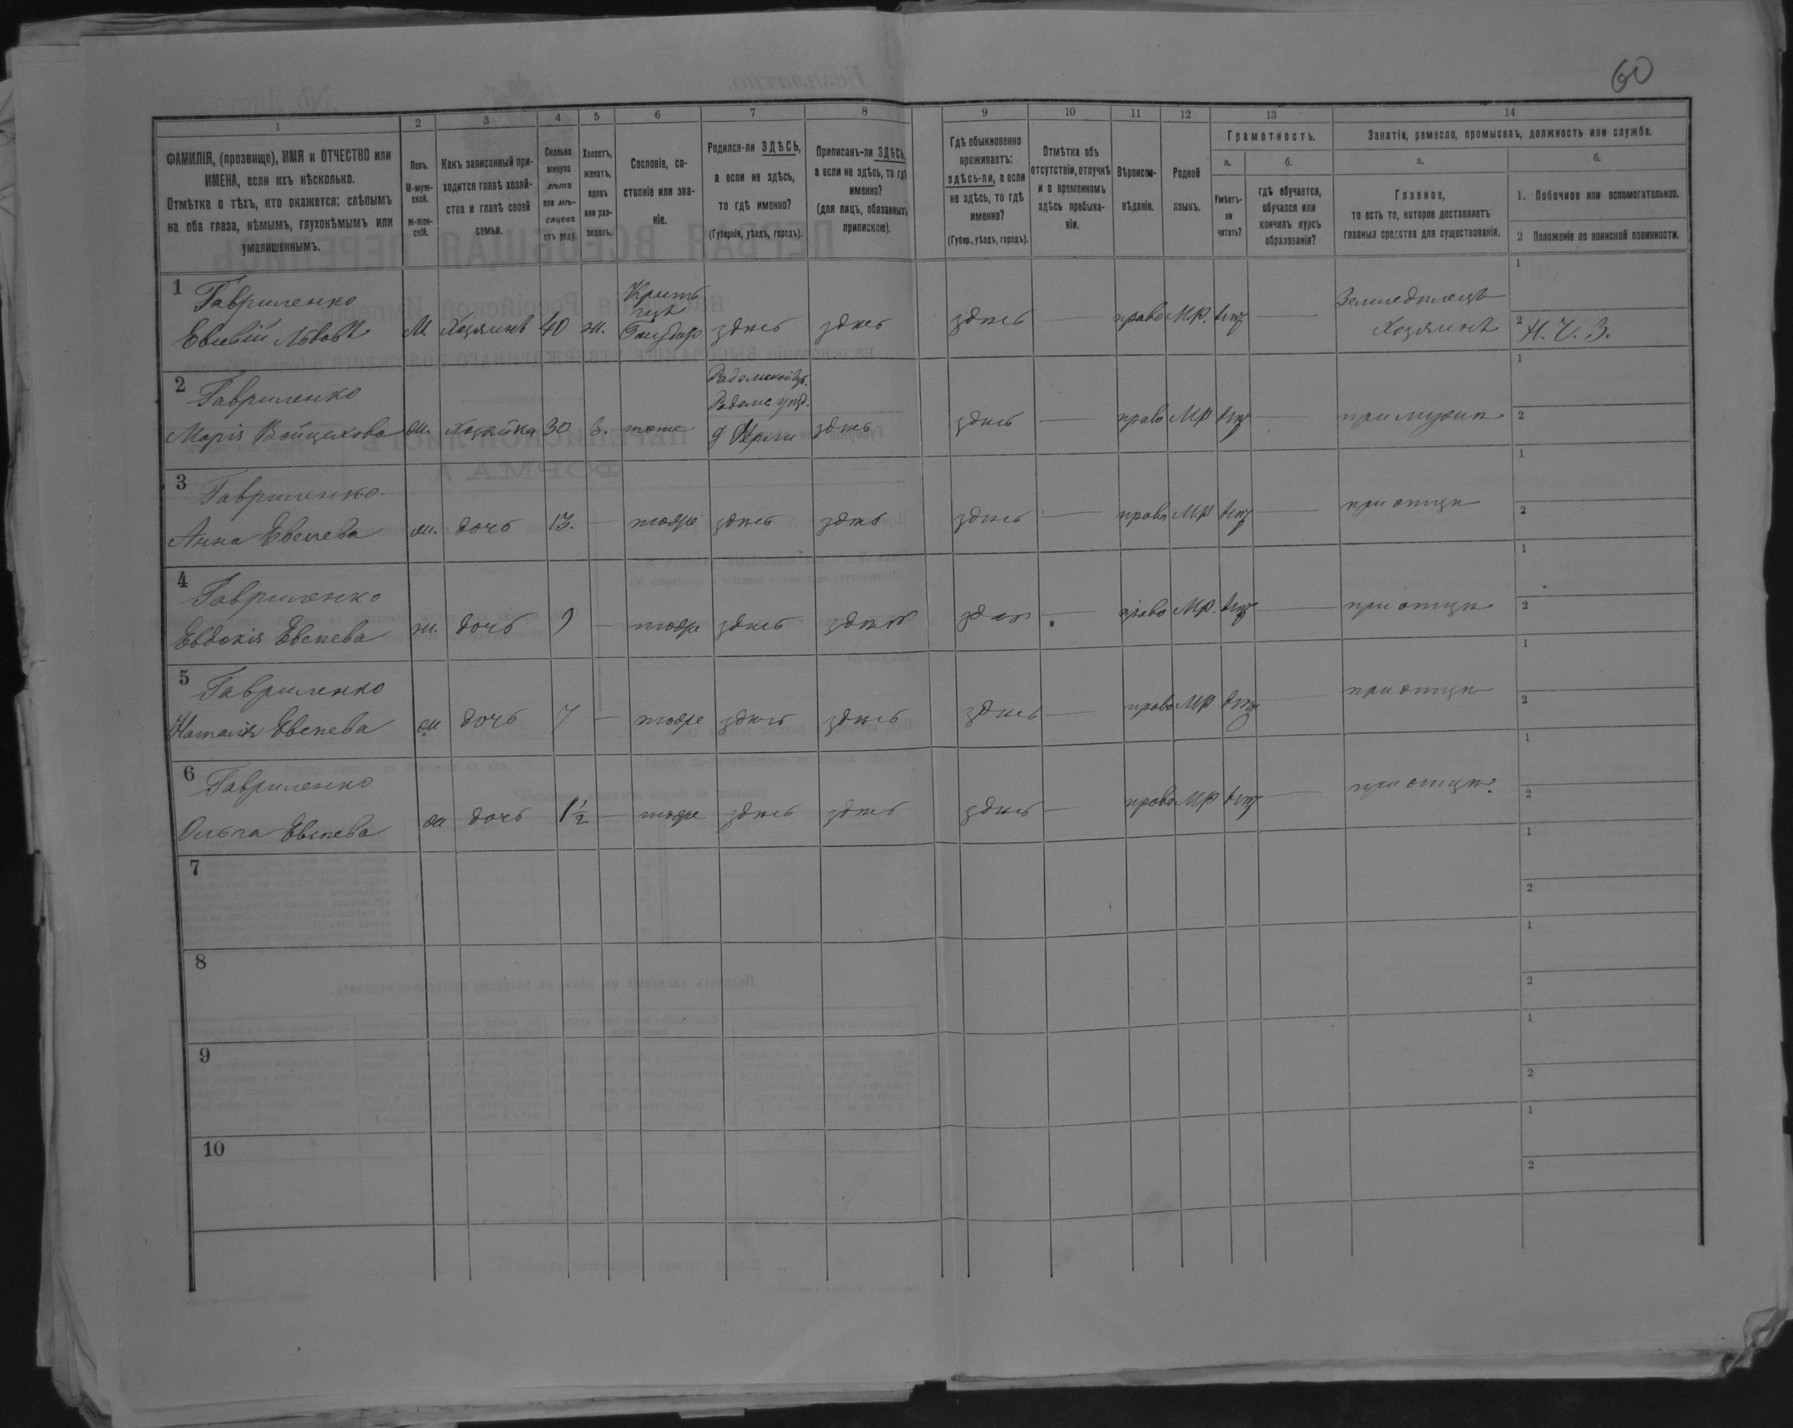 60
1
2
3
4
5
6
7
8
9
10
11
12
13
14
ФАМИЛІЯ, (прозвище), ИМЯ и ОТЧЕСТВО или
ИМЕНА, если ихъ нѣсколько.
Отмѣтка о тѣхъ, кто окажется: слѣпымъ
на оба глаза, нѣмымъ, глухонѣмымъ или
умалишеннымъ.
Полъ.
М-муж-
ской.
Ж-жен-
скій.
Какъ записанный при-
ходится главѣ хозяй-
ства и главѣ своей
семьи.
Сколько
минуло
лѣтъ
или мѣ-
сяцевъ
отъ роду.
Холостъ,
женатъ,
вдовъ
или раз-
веденъ.
Сословіе, со-
стояніе или зва-
ніе.
Родился-ли ЗДѢСЬ,
а если не здѣсь,
то гдѣ именно?
(Губернія, уѣздъ, городъ).
Приписанъ-ли ЗДѢСЬ,
а если не здѣсь, то гдѣ
именно?
(для лицъ, обязанныхъ
припискою).
Гдѣ обыкновенно
проживаетъ:
здѣсь-ли, а если
не здѣсь, то гдѣ
именно?
(Губер., уѣздъ, городъ).
Отмѣтка объ
отсутствіи, отлучкѣ
и о временномъ
здѣсь пребыва-
ніи.
Вѣроиспо-
вѣданіе.
Родной
языкъ.
Грамотность.
а.
Умѣетъ-
ли
читать?
б.
гдѣ обучается,
обучался или
кончилъ курсъ
образованія?
Занятія, ремесло, промыселъ, должность или служба.
а.
Главное,
то есть то, которое доставляетъ
главныя средства для существованія.
б.
1. Побочное или вспомогательное.
2 Положеніе по воинской повинности.
1 Гавриленко
Львовъ М. Хозяинъ 40 ж. здѣсь здѣсь здѣсь — право МР. —
Земледѣлецъ
Хозяинъ
1
2 Н. Ч. З.
2 Гавриленко
Марія Войцехова ж. Хозяйка 30 з. тоже
Радомской губ.
Радомс уѣзд.
здѣсь здѣсь — право МР —
при мужѣ
1
2
3 Гавриленко
Анна ж. дочь 13. — тоже здѣсь здѣсь здѣсь — право МР —
при отцѣ
1
2
4 Гавриленко
Евдокія ж. дочь 9 — тоже здѣсь здѣсь здѣсь — право МР. —
при отцѣ
1
2
5 Гавриленко
Наталія ж дочь 7 — тоже здѣсь здѣсь здѣсь — право МР —
при отцѣ
1
2
6 Гавриленко
Ольга ж дочь 1½ — тоже здѣсь здѣсь здѣсь — право МР —
при отцѣ.
1
2
7
1
2
8
1
2
9
1
2
10
1
2